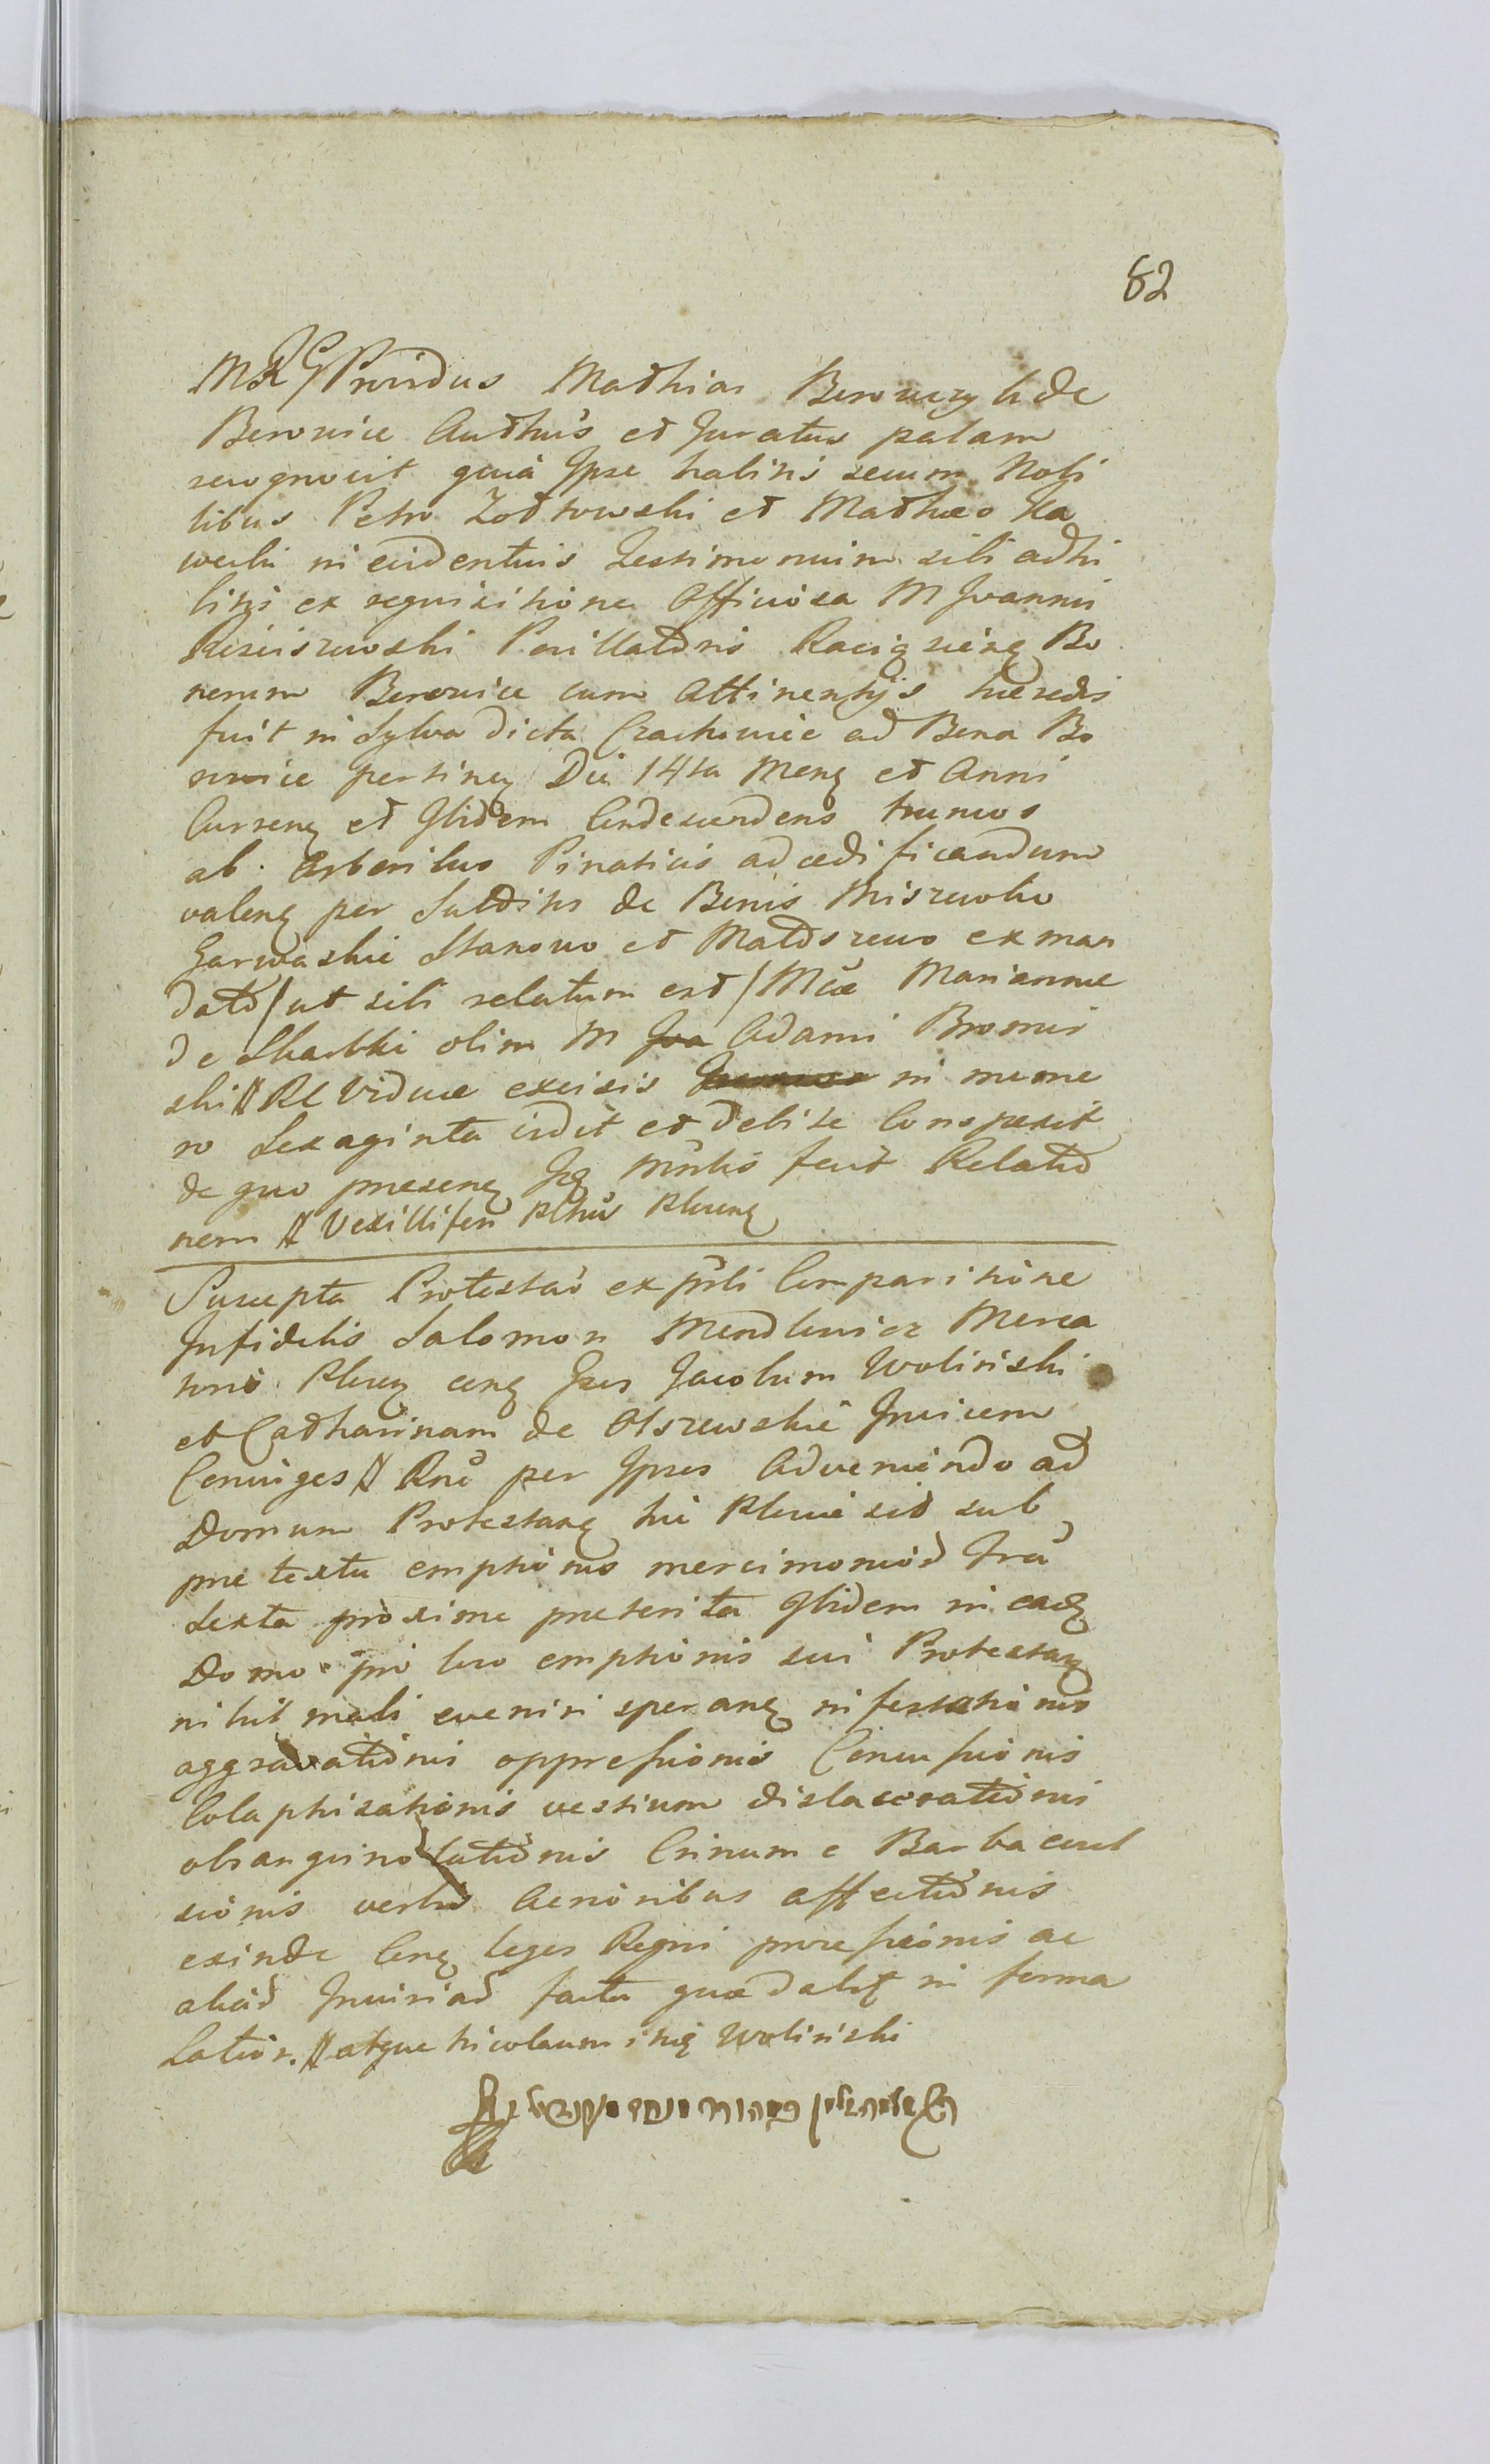 82
Providus Mathias Berowczyk de
Berowice Authus et Juratus palam
recognovit quia Ipse habitis secum Nobi
libus Petro Zodtowski et Mathæo Ka
wecki in evidentius Testimonium sibi adhi
bitis ex requisitione Officiosa M Joannis
Kisiszewski Pocillatoris Raciąziens Bo
norum Berowice cum Attinentijs hæredis
fuit in Sylva dicta ad Bona Be
rowice pertinen Die 14ta Mens et Anni
Curren et Ibidem Condescendens truncos
ab Arboribus Pinaticis ad ædificandum
valens per Subditos de Bonis Miszewko
Garwaskie Stanowo et ex man
dato / ut sibi relatum est / Mcæ Mariannæ
de Skarbki olim M Joa Adami Bromir
ski # RL Viduæ excisis in nume
ro Sexaginta vidit et debite Conspexit
de quo presens Jq Mrlis fecit Relatio
nem # Vexilliferi Plocens
Suscepta Protestatio ex prli Comparitione
Infidelis Salomon Mendlewicz Merca
toris Plocen cong Gsos Jacobum Wolinski
et Catharinam de Olszewskie Invicem
Conjuges # Rne per Ipsos Adveniendo ad
Domum Protestans hic Plociæ sit sub
pretextu emptionis mercimonior fria
Sexta proxime preterita Ibidem in eadq
Domo pro loco emptionis sui Protestan
nihil mali eveniri sperans infestationis
aggravationis oppressionis Concussionis
Colaphisationis vestium dislacerationis
obsanguinolationis Crinum e Barba evul
sionis verbis Acrioribus affectionis
exinde Cong leges Regni processionis ac
aliar Injuriar facta quæ dabit in forma
Latior. # atque Nicolaum itiq Wolinski